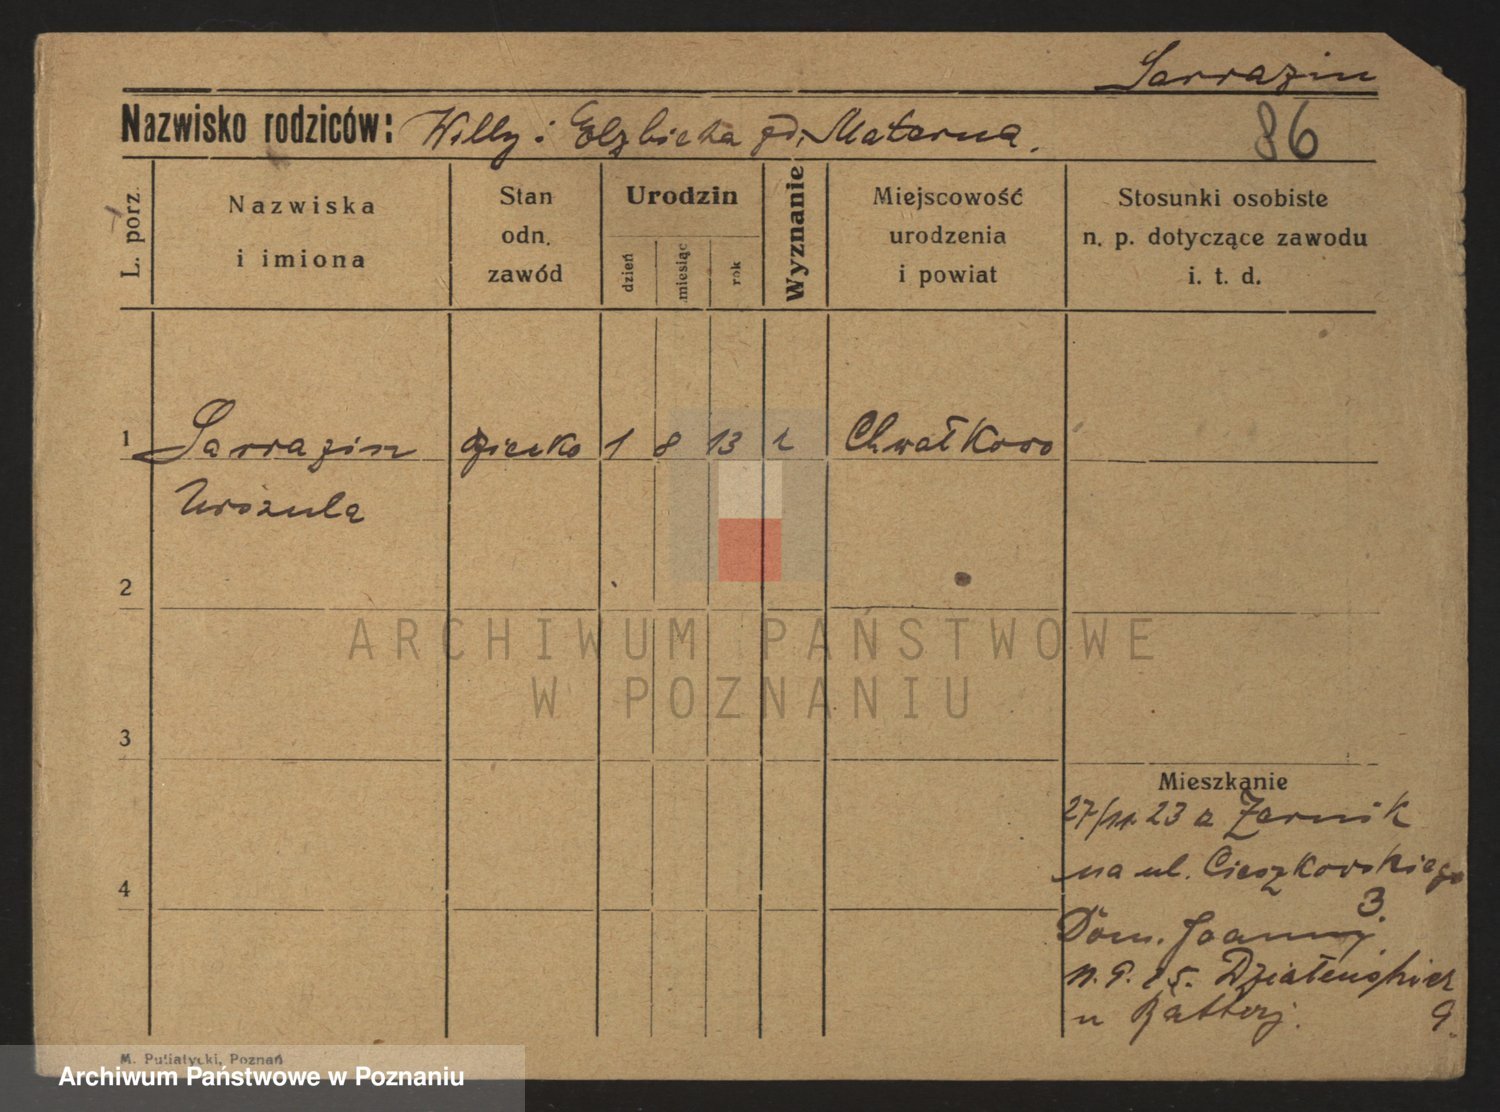 Sarrazin
Nazwisko rodziców: Willy i Elzbieta Materna.
86
L. porz.
Nazwiska
i imiona
Stan
odn.
zawód
Urodzin
dzień
miesiąc
rok
Wyznanie
Miejscowość
urodzenia
i powiat
Stosunki osobiste
n. p. dotyczące zawodu
i. t. d.
1 Sarrazin 1 8 13 Chwałkowo
Urszula
2
ARCHIWUM PAŃSTWOWE
W POZNANIU
3
Mieszkanie
23 z Żernik
na ul. Cieszkowskiego
3.
4
Dom. Joanny
25. Działyńskich
u 9.
M. Putiatycki, Poznań
Archiwum Państwowe w Poznaniu